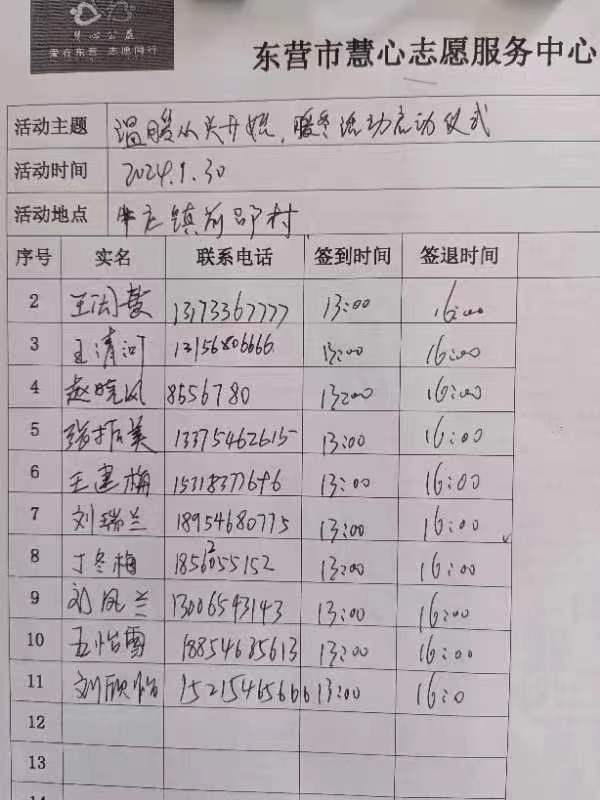 慧心公益
爱在东营 志愿同行
东营市慧心志愿服务中心
活动主题 温暖从头开始,暖冬活动启动仪式
活动时间 2024.1.30
活动地点 牛庄镇前邵村
序号 实名 联系电话 签到时间 签退时间
2 13173367777 13:00 16:00
3 王清河 13156806666 13:00 16:00
4 赵晓风 8556780 13:00 16:00
5 张振美 13375462615 13:00 16:00
6 王建梅 13:00 16:00
7 刘瑞兰 18954680775 13:00 16:00
8 丁冬梅 18562055152 13:00 16:00
9 刘凤兰 13006543143 13:00 16:00
10 王怡雪 18854685613 13:00 16:00
11 刘欣怡 15215465666 13:00 16:0
12
13
14